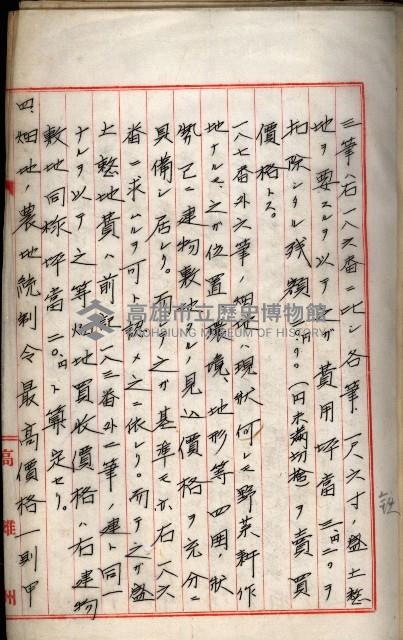 三筆ハ右一八六番ニ比シ各筆一尺六寸ノ盛土整
地ヲ要スルヲ以テ之ガ費用坪當三、円二〇ヲ
扣除シタル残額(円未満切捨)ヲ賣買
價格トス。
一八七番外六筆ノ畑地ハ現状何レモ野菜耕作
地ナルモ、之ガ位置、環境、地形等四囲ノ状
勢已ニ建物敷地タル見込價格ヲ充分ニ
具備シ居レリ。而テ之ガ基準モ亦右一八六
番ニ求ムルヲ可ト認メ之ニ依レリ。而テ之ガ盛
土整地費ハ前之一八三番外二筆ノ連ト同一
ナルヲ以テ之等畑地買收價格ハ右建物
敷地同様坪當二〇、円ト算定セリ。
四、畑地ノ農地統制令最高價格一則甲
高雄州
高雄市立歷史博物館
KAOHSIUNG MUSEUM OF HISTORY